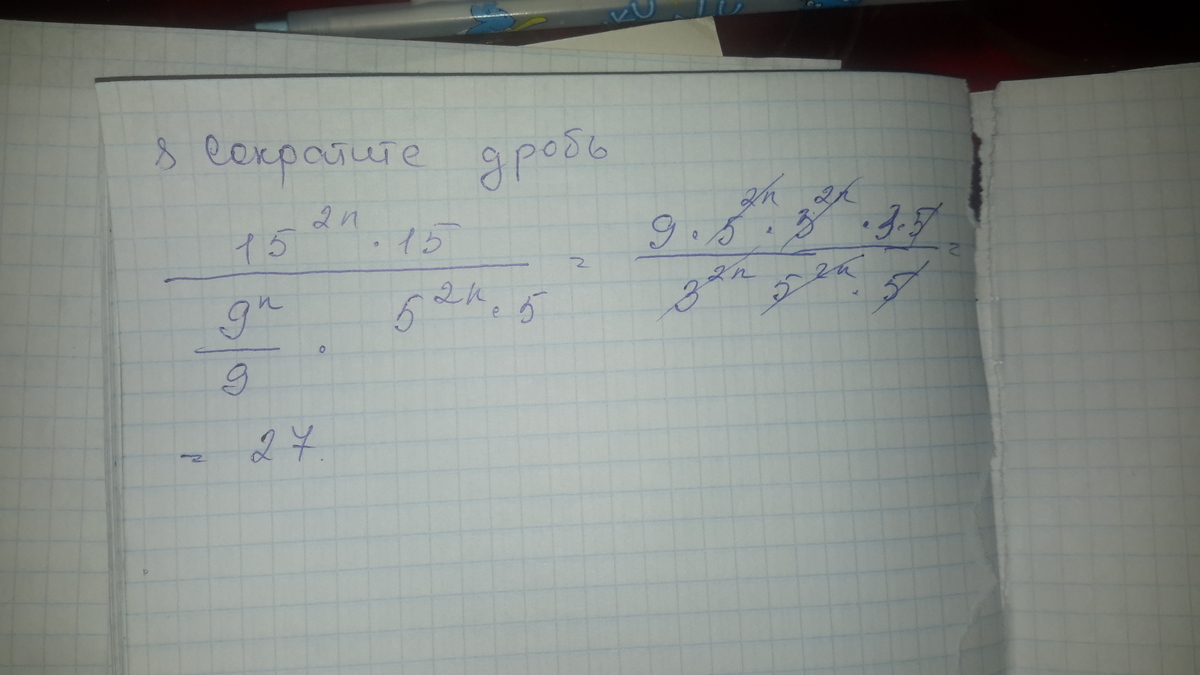 8 Сократите дробь
15^{2n} · 15 / (9^n / 9 · 5^{2n} · 5) = 9 · 5^{2n} · 3^{2n} · 3 · 5 / (3^{2n} 5^{2n} · 5) =
= 27.